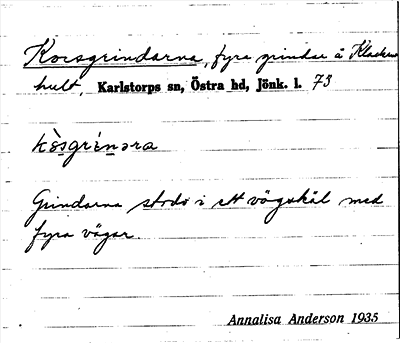 Korsgrindarna, fyra grindar å Klackra-
hult, Karlstorps sn, Östra hd, Jönk. l. 73
kòsgrinəra
Grindarna stodo i ett vägskäl med
fyra vägar.
Annalisa Anderson 1935